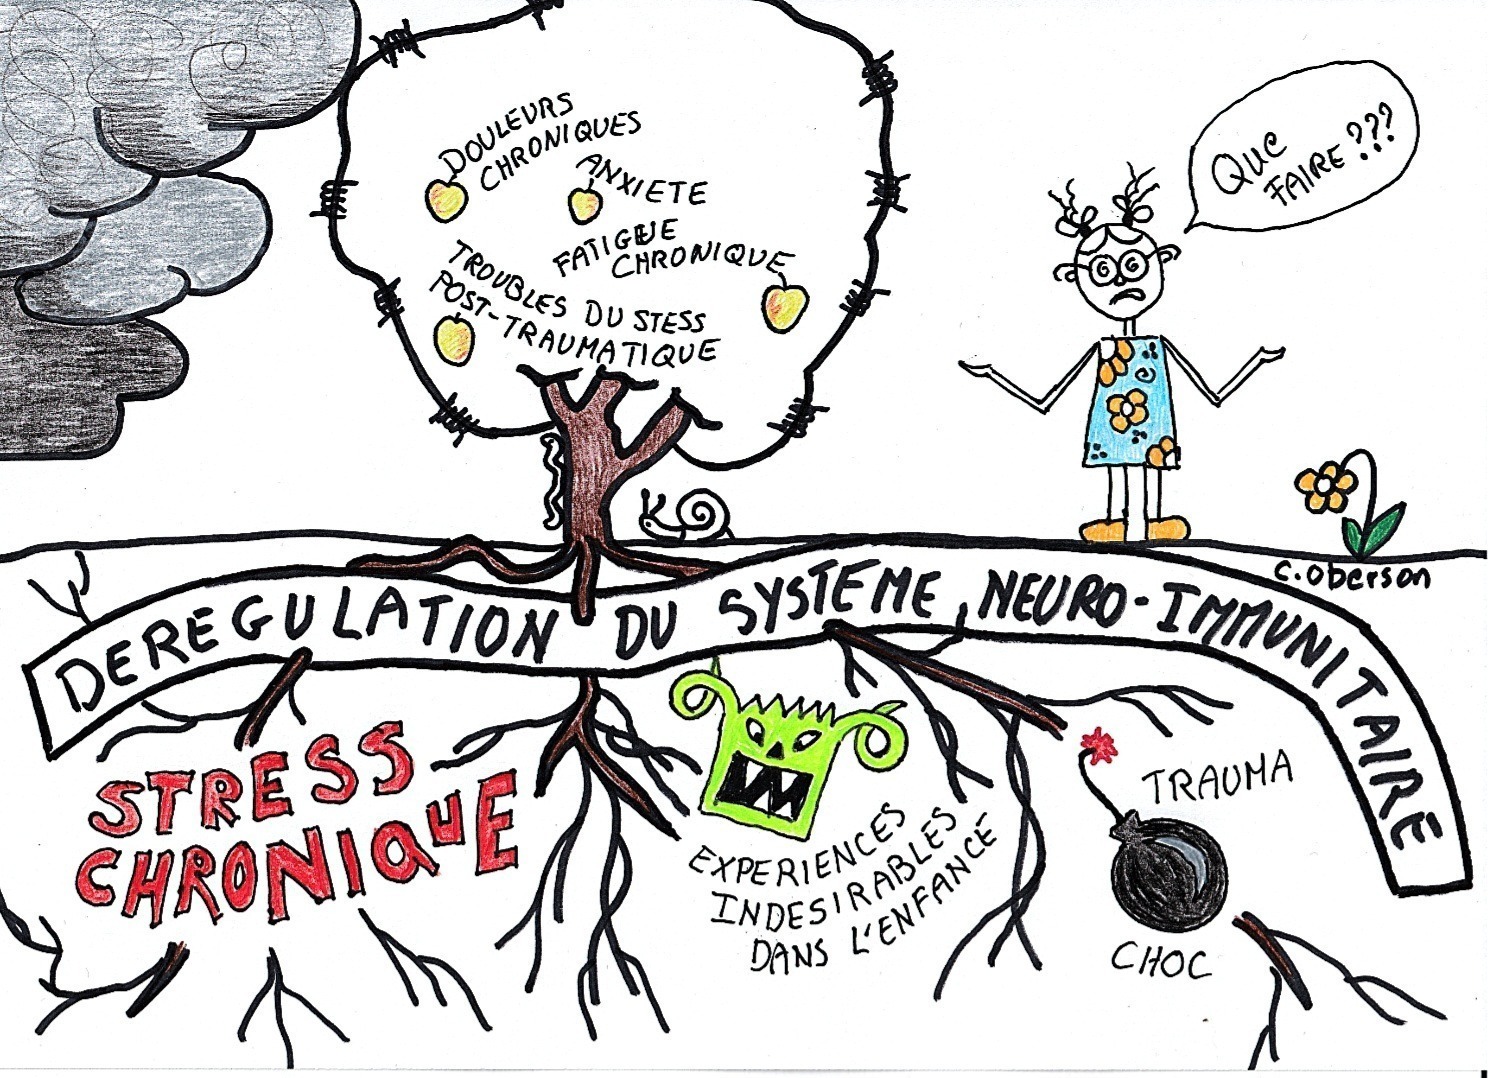 DOULEURS
CHRONIQUES
ANXIETE
FATIGUE
CHRONIQUE
TROUBLES DU STESS
POST-TRAUMATIQUE
QUE
FAIRE ???
C. Oberson
DEREGULATION DU SYSTEME NEURO-IMMUNITAIRE
STRESS
CHRONIQUE
EXPERIENCES
INDESIRABLES
DANS L'ENFANCE
TRAUMA
CHOC